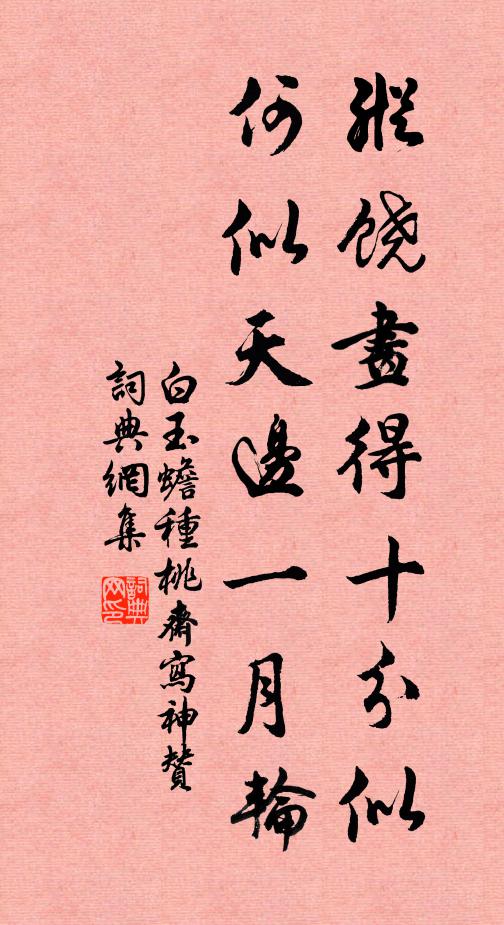 縱饒畫得十分似
何似天邊一月輪
白玉蟾種桃齋寫神贊
詞典網集
詞典网印